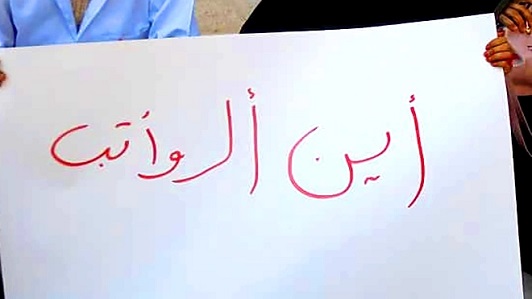 أين ألروأتب